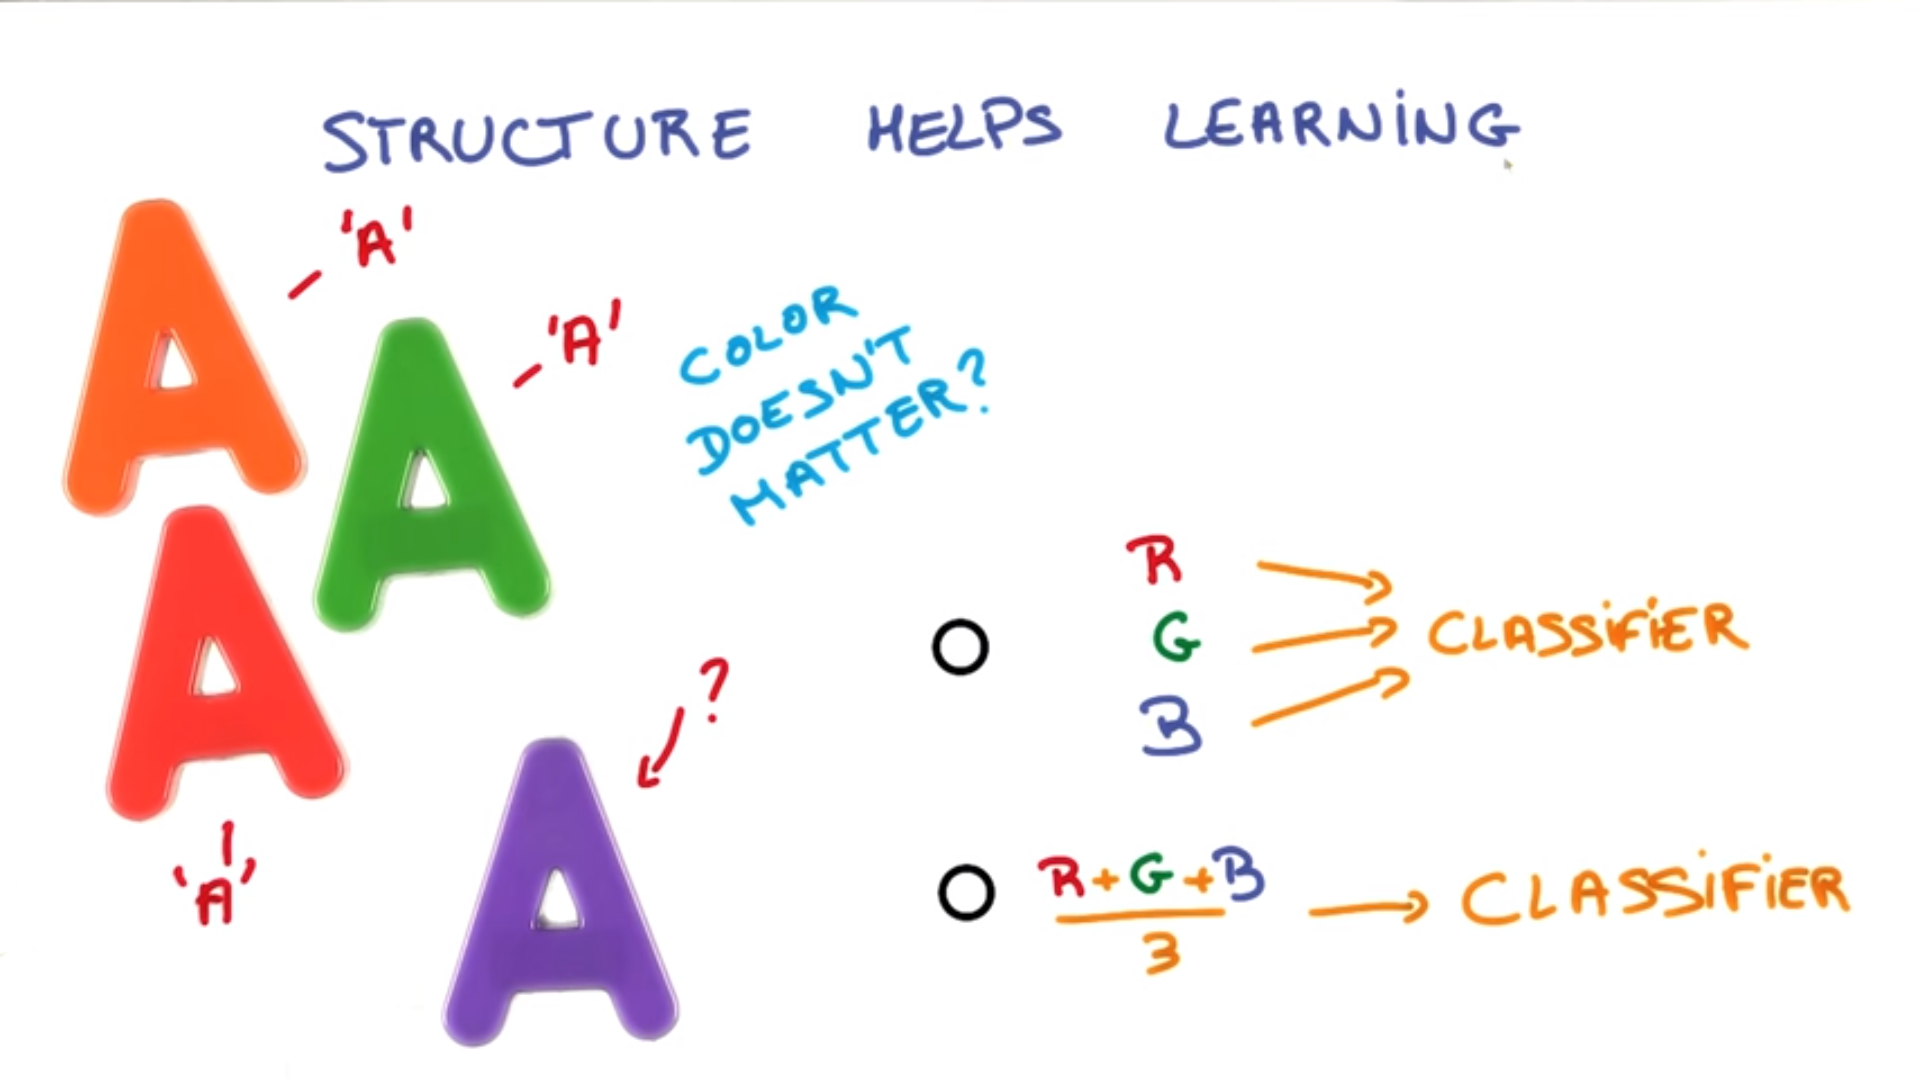 STRUCTURE HELPS LEARNING
'A'
'A'
COLOR
DOESN'T
MATTER?
'A'
?
A
A
A
A
R
G
B
CLASSIFIER
R+G+B
3
CLASSIFIER